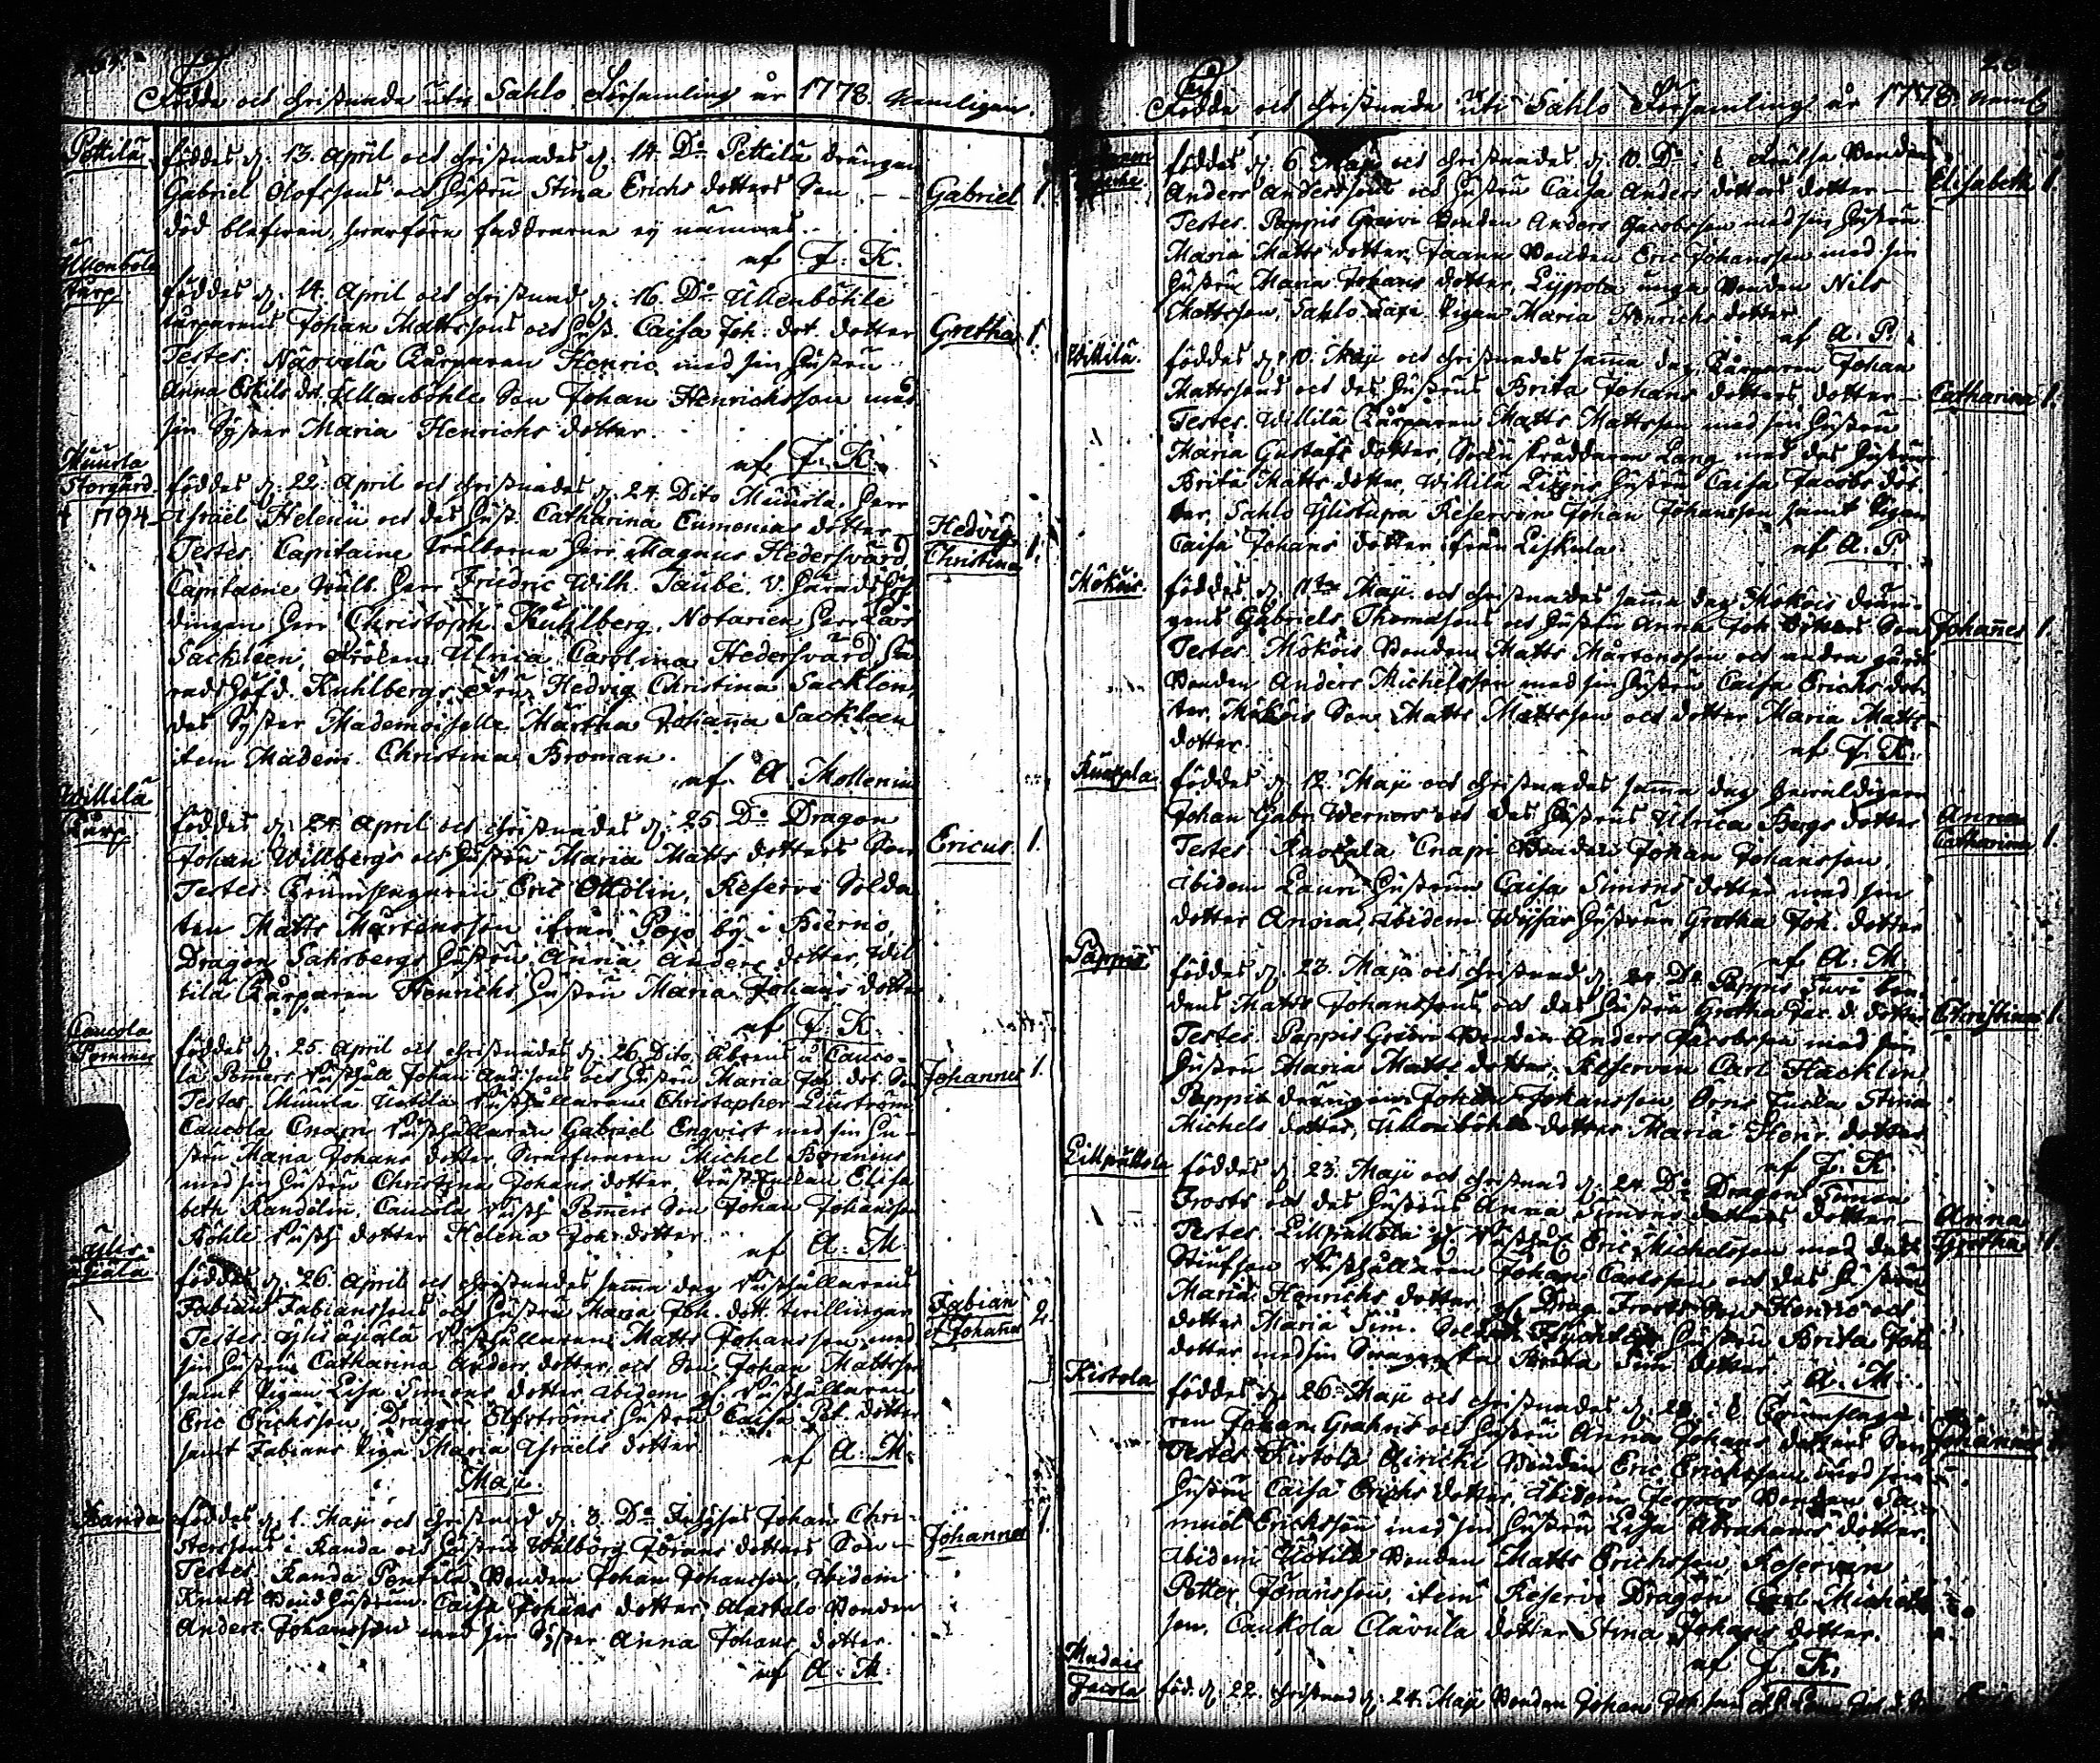 Födde och christnade uti Sahlo Församling år 1778. Nemligen.
Pettilä
föddes d: 13. April och christnades d: 14. Do Pettilä drängen
Gabriel Olofssons och hustru Stina Erichs dotters Son
Gabriel 1.
död blefwen, hwarföre faddrarne ej nämnas.
af J: K.
Ullenböle
torp.
föddes d: 14. April och christnad d: 16. Do Ullenböhle
torparens Johan Mattssons och hust. Caisa Joh: dot. dotter
Gretha 1.
Testes. Närvälä Torparen Henric med sin hustru
Anna Eskils dot. Ullenböhle Son Johan Henrichsson med
sin Syster Maria Henrichs dotter.
af J: K.
Muurla
Storgård.
† 1794
föddes d: 22. April och christnades d: 24. Dito Muurla, Herr
Israël Helenii och des hust. Catharina Cumenius dotter
Hedvig
Christina 1.
Testes. Capitaine Wälborne Herr Magnus Hedersvärd,
Capitaine Wälb. Herr Friedric Wilh. Taube, V. härads höf
dingen Herr Christoph. Kuhlberg, Notarien Herr Lars
Sackleen, Fröken Ulrica Carolina Hedersvärd, hä
rads höfd. Kuhlbergs Fru Hedvig Christina Sacklen,
des Syster Mademoiselle Märtha Johanna Sackleen
item Madem. Christina Broman.
af A. Mollenius
Willilä
Torp
föddes d: 24. April och christnades d: 25. Do Dragon
Johan Willbergs och hustru Maria Matts dotters Son
Ericus 1.
Testes. Trumslagaren Eric Ollolin, Reserve Solda
ten Matts Mårtensson ifrån Pojo by i Bierno,
Dragon Sahrbergs hustru Anna Anders dotter, Wil
lilä Torparen Henrichs hustru Maria Johans dotter
af J: K.
Caucola
Pommer
föddes d: 25. April och christnades d: 26 Dito Åboens å Cauco-
la Pomers Rusthåll Johan And:sons och hustru Maria Joh. dot. Son
Johannes 1.
Testes. Muurla Uotila Rusthållaren Christopher Liuström
Caucola Cnapi Rusthållaren Gabriel Enqvist med sin hu-
stru Maria Johans dotter, Swarfwaren Michel Boxenius
med sin hustru Christina Johans dotter, Enkan Elisa
beth Randelin, Caucola Rusth. Pomers Son Johan Johansson
Köhli Rusth. dotter Helena Joh: dotter
af A: M.
Ylis-
pälä
föddes d: 26. April och christnades sama dag Rusthållarens
Fabian Fabianssons och hustru Maria Joh. dott. twillingar
Fabian
et Johañes 2.
Testes. Rusthållaren Matts Johansson med
sin hustru Catharina Anders dotter och Son Johan Mattsson
samt Pigan Lisa Simons dotter ibidem Rusthållaren
Eric Erichsson, Dragon Elfströms hustru Caisa Pet. dotter
samt Fabians Piga Maria Israels dotter
af A: M:
Maji.
Randa
föddes d: 1. Maji och christnad d: 3. Do Inhyses Johan Chri-
sterssons i Randa och hustru Walborg Jörans dotters Son
Johannes 1.
Testes. Randa Penttilä Bonden Johan Johansson, ibidem
Knuti Bond hustrun Caisa Johans dotter, Alastalo Bonden
Anders Johansson med sin Syster Anna Johans dotter.
af A: M.
Födde och christnade uti Sahlo Församling år 1778. Neml.
föddes d: 6. Maji och christnades d: 10. Do Frälse Bonden
Anders Anderssons och hustru Caisa Anders dotters dotter
Elisabeth 1.
Testes. Pappis Greivi Bonden Anders Jacobsson med sin hustru
Maria Matts dotter, Jaana Bonden Eric Johansson med sin
hustru Maria Johans dotter, Lypola unga Bonden Nils
Mattsson, Sahlo Laxi Pigan Maria Henrichs dotter
af A. P.
Willilä.
föddes d: 10. Maji och christnades sama dag Torparen Johan
Mattssons och des hustrus Brita Johans dotters dotter
Catharina 1.
Testes. Willilä Torparen Matts Mattsson med sin hustru
Maria Gustafs dotter, Sockn skräddaren Lang med des hustru
Brita Matts dotter, Willilä hustru Caisa Jacobs dot-
ter, Sahlo Ylistupa Reserven Johan Johansson samt Pigan
Caisa Johans dotter ifrån Liskula.
af A. P.
Mökois.
föddes d: 11te Maji och christnades sama dag Mökois drän-
gens Gabriels Thomassons och hustru Anna Joh. dotters Son
Johañes 1.
Testes. Mökois Bonden Matts Mårtensson och andra gårds
Bonden Anders Michelsson med sin hustru Caisa Erichs dot-
ter, Mökois Son Matts Mattsson och dotter Maria Matts
dotter.
af J. K.
föddes d: 12. Maji och christnades sama dag Gewaldigern
Johan Gabr. Werners och des hustrus Ulrica Bergs dotter
Anna
Catharina 1.
Testes. Cnapi Bonden Johan Johansson,
ibidem Lauri hustrun Caisa Simons dotter med sin
dotter Anna, ibidem hustrun Gretha Joh. dotter
af A: M.
Pappis
föddes d: 23. Maji och christnad d: 24. Do Pappis Bon
dens Matts Johanssons och des hustru Gretha dotter
Christina 1.
Testes. Pappis Greivi Bonden Anders Jacobsson med sin
hustru Maria Matts dotter, Reserven Carl Hacklin,
Pappis drängen Johan Johansson, Örns Enka Stina
Michels dotter, Ullenböhle dotter Maria Henr. dotter
af J. K.
Lillpullola
föddes d: 23. Maji och christnad d: 24. Do Dragon Simon
Frosts och des hustrus Anna Simons dotters dotter
Anna
Gretha 1.
Testes. Lillpullola Eric Michelsson med des
Stiufson Rusthållaren Johan Carlsson och des hustru
Maria Henrichs dotter, Drag. Frosts Son Henric och
dotter Maria Sim. hustru Brita Joh.
dotter med sin Brita Sim. dotter
A: M.
Kistola
föddes d: 26. Maji och christnades d: 28. Trumslaga
ren Johan Grahns och hustru Anna Johans dotters Son
Johannes 1.
Testes. Kistola Airichi Bonden Eric Erichsson med sin
hustru Caisa Erichs dotter, ibidem Jespers Bonden Sa-
muel Erichsson med sin hustru Lisa Abrahams dotter,
ibidem Uotila Bonden Matts Erichsson, Reserven
Petter Jöransson, item Reserve Dragon Carl Michels
son, Caukola Clavula dotter Stina Johans dotter.
af J. K.
föd. d: 22. christnad d: 24. Maji Bonden Johan